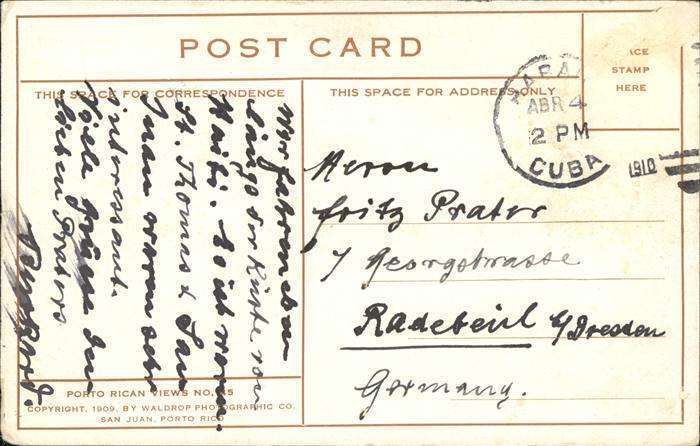 POST CARD
THIS SPACE FOR CORRESPONDENCE
THIS SPACE FOR ADDRESS ONLY
ACE
STAMP
HERE
HABA
ABR 4
2 PM
CUBA
1910
Wir fahren eben
längs der Küste von
Haiti. Es ist
St. Thomas & San
Juan waren sehr
interessant.
Viele Grüsse den
lieben Praters
Herrn
Fritz Prater
7 Georgstrasse
Radebeul b/Dresden
Germany.
PORTO RICAN VIEWS NO. 15
COPYRIGHT, 1909, BY WALDROP PHOTOGRAPHIC CO.
SAN JUAN, PORTO RICO